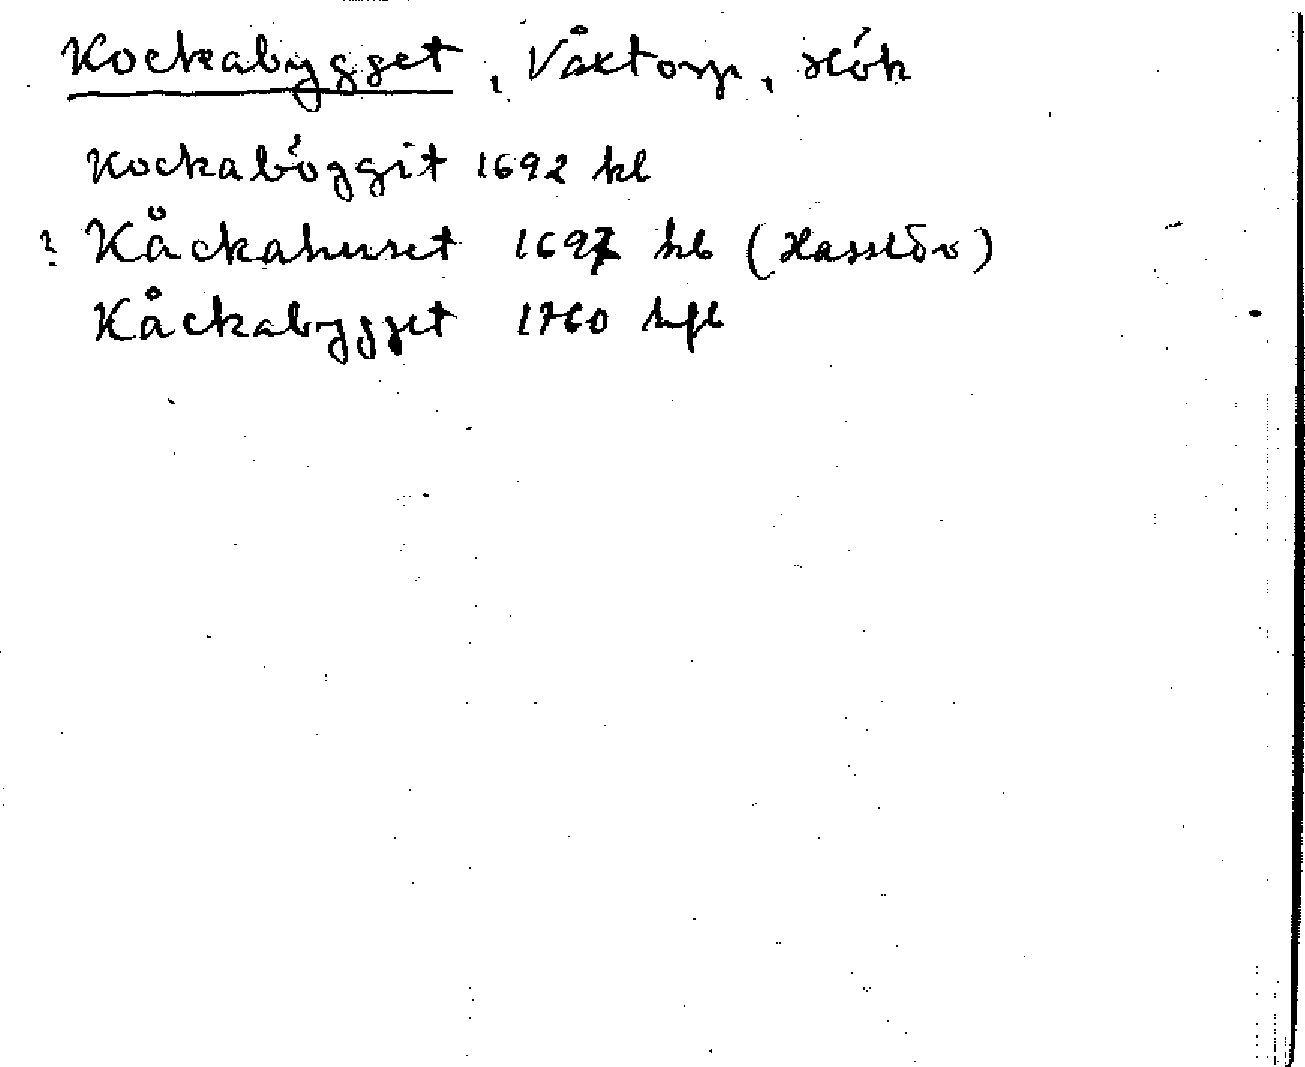 Kockabygget, Våxtorp, Hök
Kockabóggit 1692 kl
? Kåckahuset 1697 hb (Hasslöv)
Kåckabygget 1760 hfb